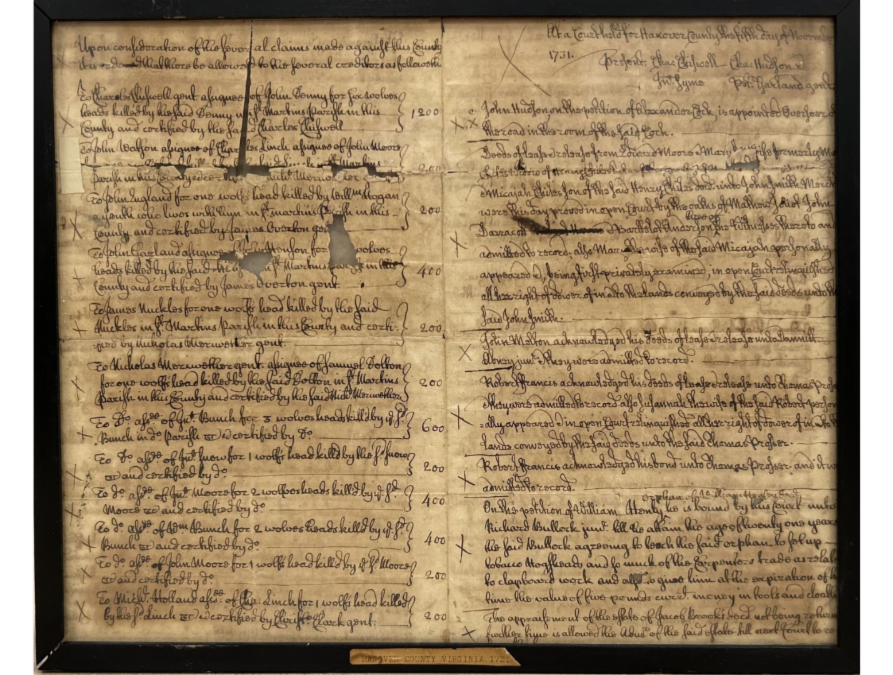 Upon consideration of the several claims made against this County
it is ordered that there be allowed to the several creditors as followeth
To Charles Chiswell gent. assignee of John Denny for six wolves
heads killed by the said Denny in St. Martins Parish in this 1200
County and certified by the said Charles Chiswell
To John Watson assignee of Charles Linch assignee of John Moore
200
Parish in this County
To John England for one wolfs head killed by Willm. Hogan
a youth who lives with him in St. martins Parish in this 200
County and certified by James Overton gent.
To John Garland assignee Henson for wolves
heads killed by the said St. Martins in this 400
County and certified by James Overton gent.
To James Nuckles for one wolfs head killed by the said
Nuckles in St. Martins Parish in this County and certi- 200
fied by Nicholas Meriwether gent.
To Nicholas Meriwether gent. assignee of Samuel Dolton
for one wolfs head killed by the said Dolton in St. Martins 200
Parish in this County and certified by the said Nich. Meriwether
To Do. assee. of Jno. Bunch for 3 wolves heads killed by ye. sd.
Bunch in do. Parish &c. certified by Do. 600
To Do. assee. of Jno. Snow for 1 wolfs head killed by the sd. Snow 200
&c. and certified by do.
To Do. assee. of Jno. Moore for 2 wolves heads killd by ye. sd. 400
Moore &c. and certified by do.
To Do. assee. of Wm. Bunch for 2 wolves heads killed by ye. sd. 400
Bunch &c. and certified by do.
To Do. assee. of John Moore for 1 wolfs head killed by ye. sd. Moore 200
&c. and certified by do.
To Michl. Holland assee. of Chs. Linch for 1 wolfs head killed
by the sd. Linch &c. and certified by Christo. Clark gent. 200
At a Court held for Hanover County the fifth day of Novem
1731.
Present. Chas. Chiswell Chs. Hudson
Jno. Syme Garland gent
John Hudson on the petition of Alexander Cock, is appointed Overseer of
the road in the room of the said Cock.
Deeds of lease & release from Moore & Mary his wife formerly
Micajah Childs son of the said Henry Childs decd. unto John Smith
were this day proved in open Court by the oaths of Mathew John
Darracot witnesses thereto and
admitted to record. also Mary the wife of the said Micajah personally
appeared & being first privately examined, in open Court relinquished
all her right of dower of in & to the lands conveyed by the said deeds unto the
said John Smith.
John Melton acknowledged his deeds of lease & release unto
junr. & they were admitted to record
Robert Francis acknowledged his deeds of lease & release unto Thomas Prosser
& they were admitted to record also Susannah the wife of the said Robert person
ally appeared & in open Court relinquished all her right of dower of in & to the
lands conveyed by the said deeds unto the said Thomas Prosser.
Robert Francis acknowledged his bond unto Thomas Prosser. and it was
admitted to record.
orphan of William Henly decd.
On the petition of William Henly he is bound by this Court unto
Richard Bullock junr. till he attain the age of twenty one years
the said Bullock agreeing to teach the said orphan to set up
tobacco hogsheads, and so much of the Carpenters trade as relates
to clapboard work and also to give him at the expiration of his
time the value of five pounds curr. money in tools and cloaths
The appraisement of the estate of Jacob Brooks decd. not being return
further time is allowed the Admx. of the said estate till next Court to re
HANOVER COUNTY VIRGINIA